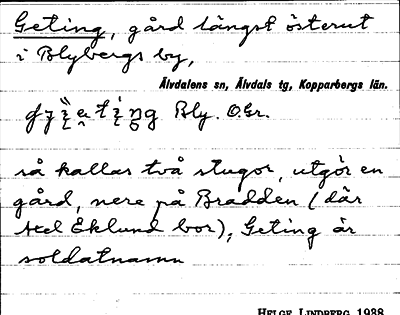 Geting, gård längst österut
i Blybergs by,
Älvdalens sn, Älvdals tg, Kopparbergs län.
Bly. O.Gr.
så kallas två stugor, utgör en
gård, nere på Bradden (där
Axel Eklund bor), Geting är
soldatnamn
HELGE LINDBERG 1988